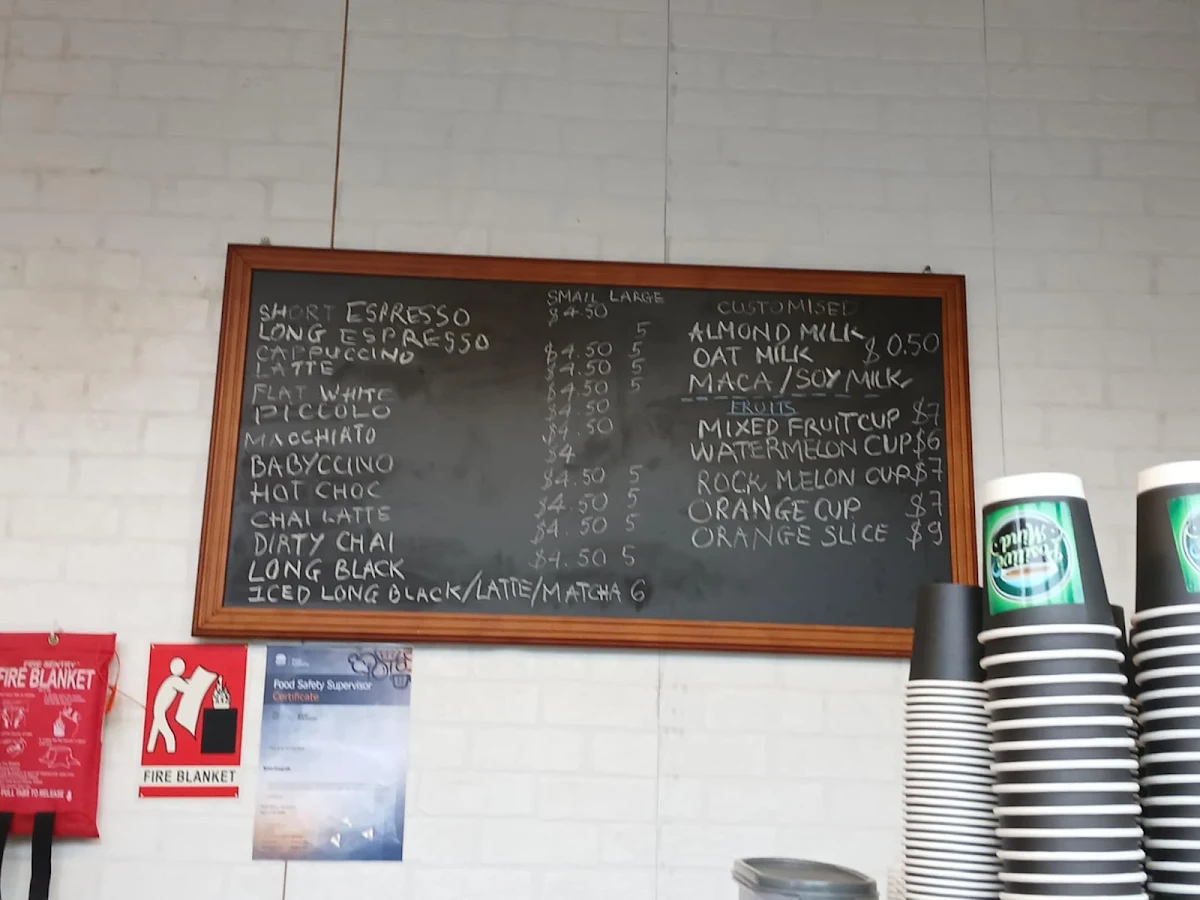 SMALL LARGE
SHORT ESPRESSO $4.50
LONG ESPRESSO 5
CAPPUCCINO $4.50 5
LATTE $4.50 5
FLAT WHITE $4.50 5
PICCOLO $4.50
MACCHIATO $4.50
BABYCCINO $4
HOT CHOC $4.50 5
CHAI LATTE $4.50 5
DIRTY CHAI $4.50 5
LONG BLACK $4.50 5
ICED LONG BLACK/LATTE/MATCHA 6
CUSTOMISED
ALMOND MILK
OAT MILK $0.50
MACA/SOY MILK
FRUITS
MIXED FRUIT CUP $7
WATERMELON CUP $6
ROCK MELON CUP $7
ORANGE CUP $7
ORANGE SLICE $9
FIRE SENTRY
FIRE BLANKET
PULL TABS TO RELEASE
FIRE BLANKET
Food Safety Supervisor
Certificate
Positive
Mind